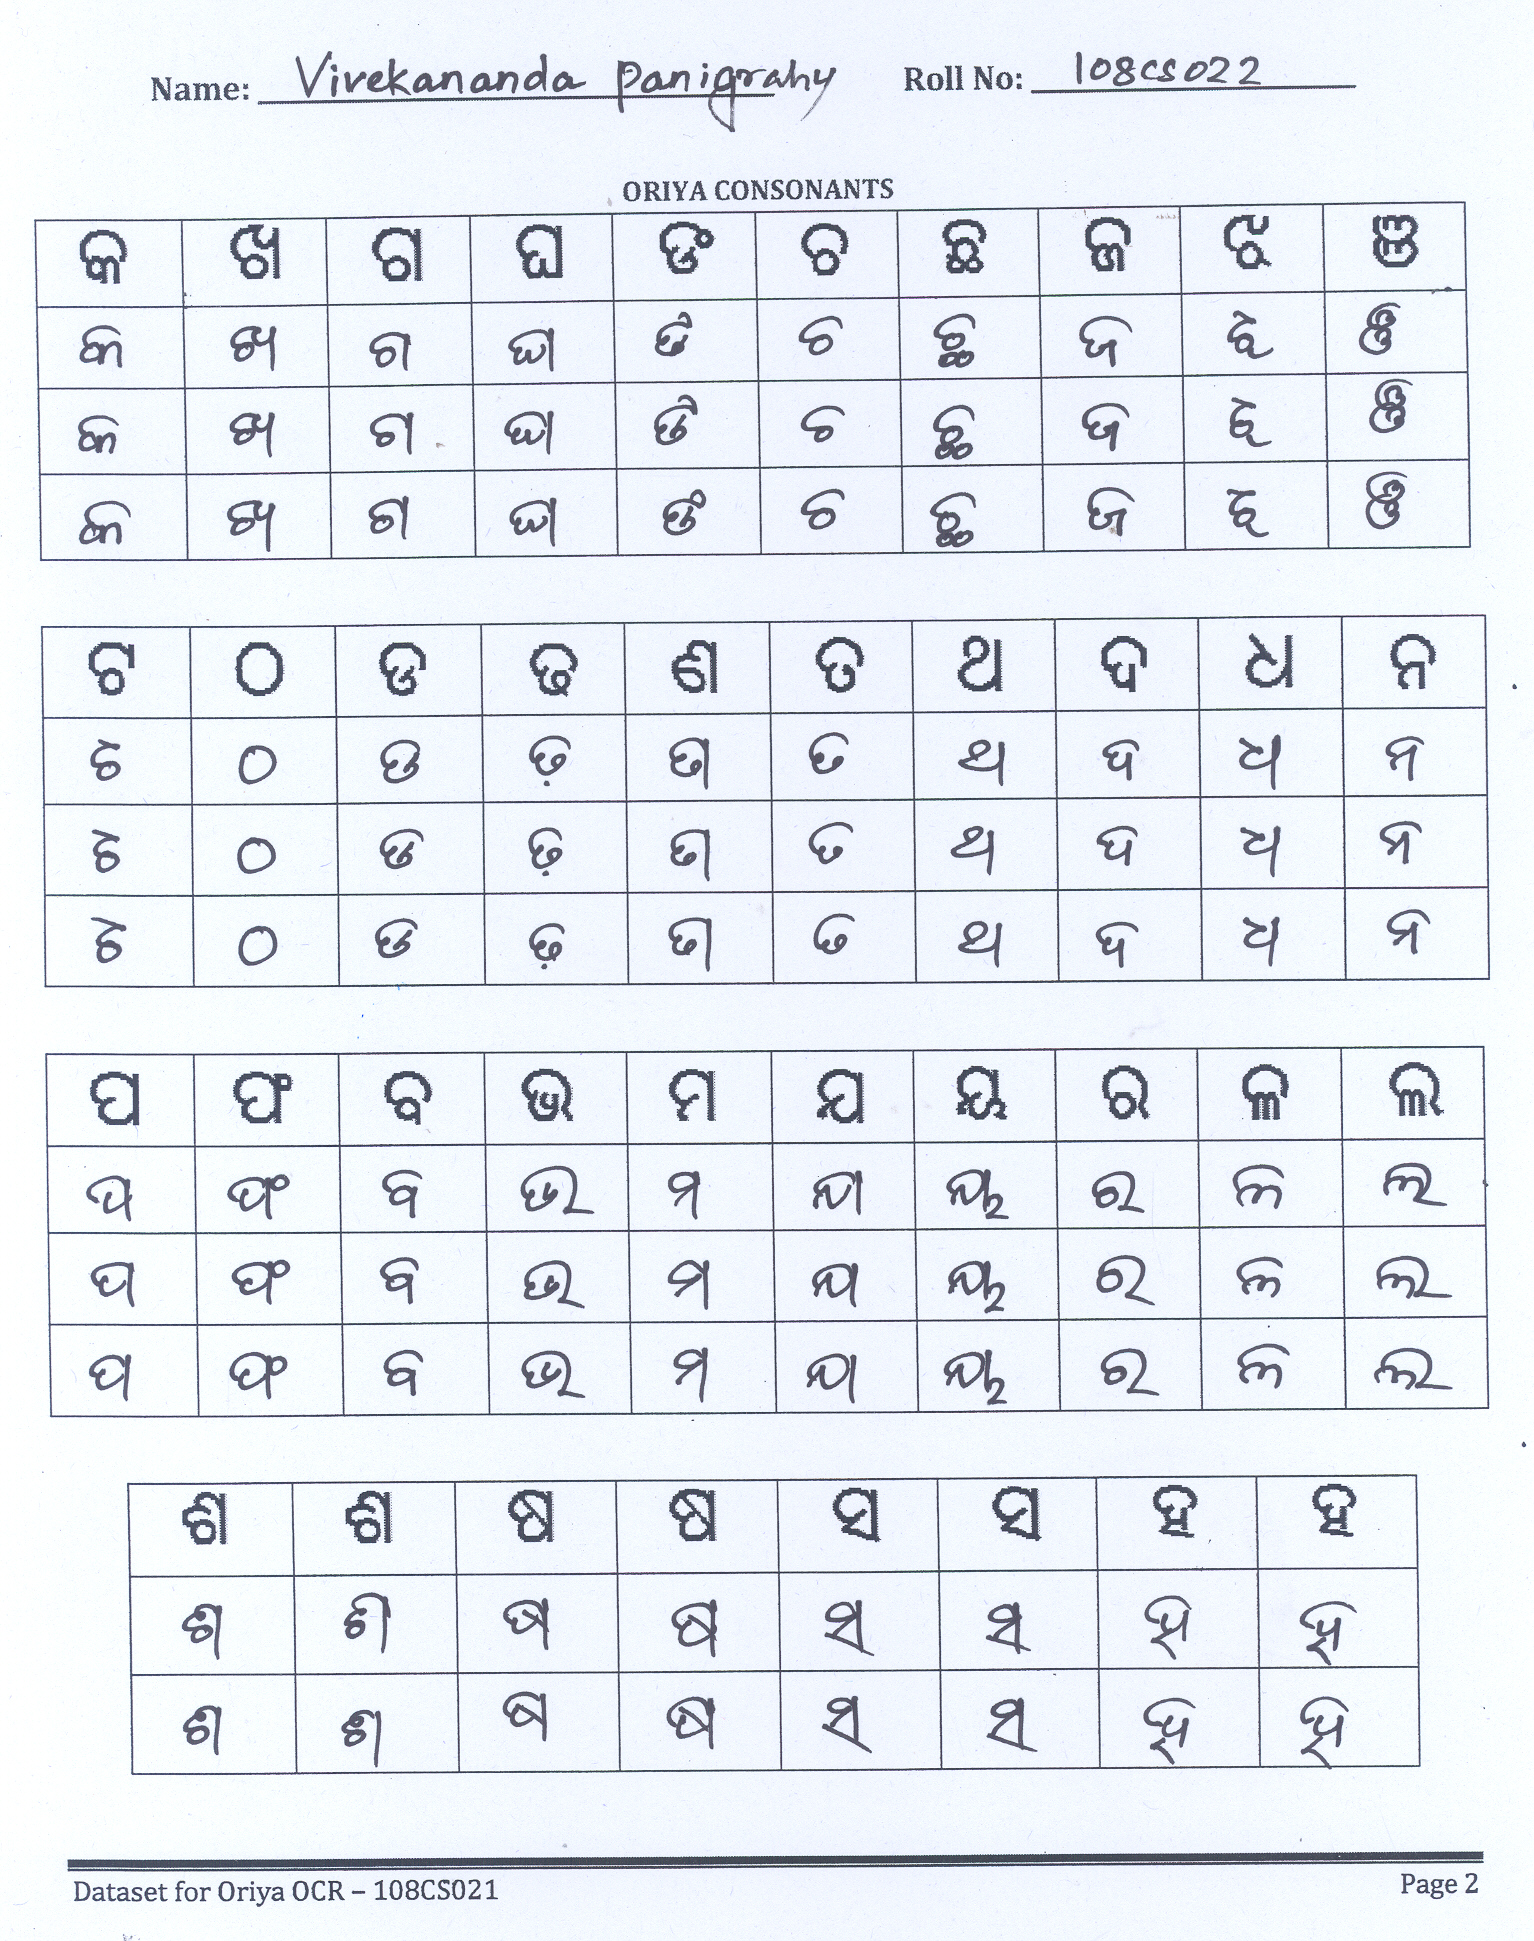 Name: Vivekananda Panigrahy Roll No: 108CS022
ORIYA CONSONANTS
କ ଖ ଗ ଘ ଙ ଚ ଛ ଜ ଝ ଞ
କ ଖ ଗ ଘ ଙ ଚ ଛ ଜ ଝ ଞ
କ ଖ ଗ ଘ ଙ ଚ ଛ ଜ ଝ ଞ
କ ଖ ଗ ଘ ଙ ଚ ଛ ଜ ଝ ଞ
ଟ ଠ ଡ ଢ ଣ ତ ଥ ଦ ଧ ନ
ଟ ଠ ଡ ଢ଼ ଣ ତ ଥ ଦ ଧ ନ
ଟ ଠ ଡ ଢ଼ ଣ ତ ଥ ଦ ଧ ନ
ଟ ଠ ଡ ଢ଼ ଣ ତ ଥ ଦ ଧ ନ
ପ ଫ ବ ଭ ମ ଯ ୟ ର ଳ ଲ
ପ ଫ ବ ଭ ମ ଯ ୟ ର ଳ ଲ
ପ ଫ ବ ଭ ମ ଯ ୟ ର ଳ ଲ
ପ ଫ ବ ଭ ମ ଯ ୟ ର ଳ ଲ
ଶ ଶ ଷ ଷ ସ ସ ହ ହ
ଶ ଶ ଷ ଷ ସ ସ ହ ହ
ଶ ଶ ଷ ଷ ସ ସ ହ ହ
Dataset for Oriya OCR – 108CS021 Page 2